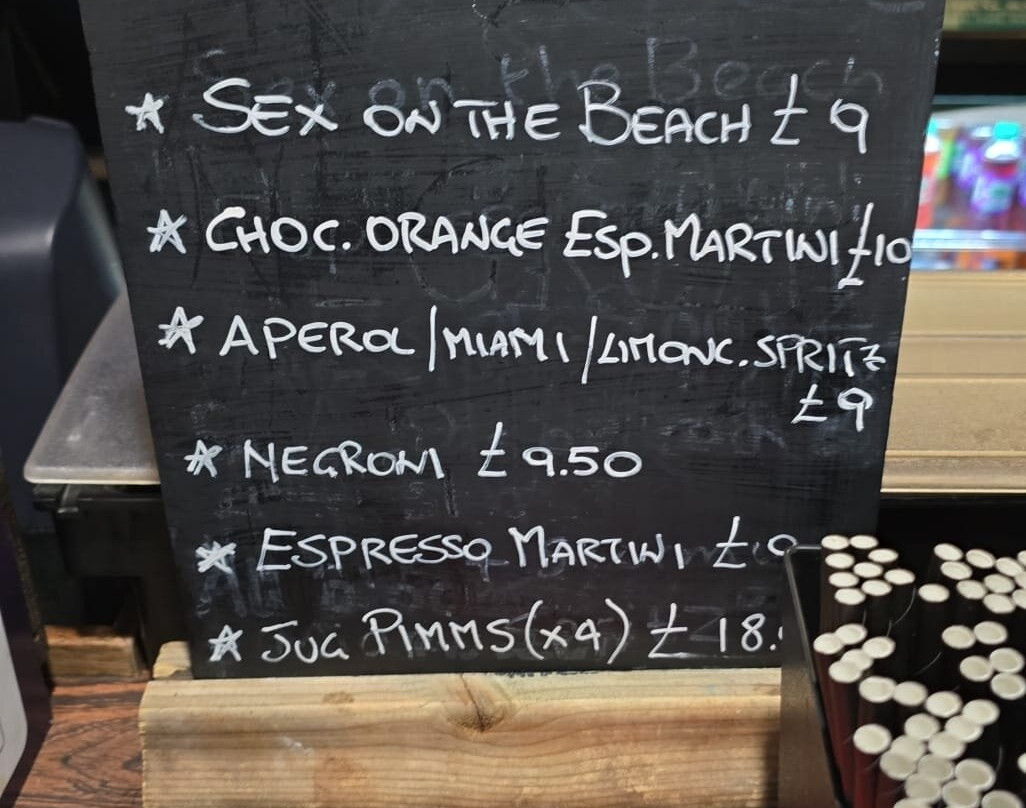 ☆ SEX ON THE BEACH £9
☆ CHOC. ORANGE ESP. MARTINI £10
☆ APEROL/MIAMI/LIMONC. SPRITZ
£9
☆ NEGRONI £9.50
☆ ESPRESSO MARTINI
☆ JUG PIMMS (x4) £18.